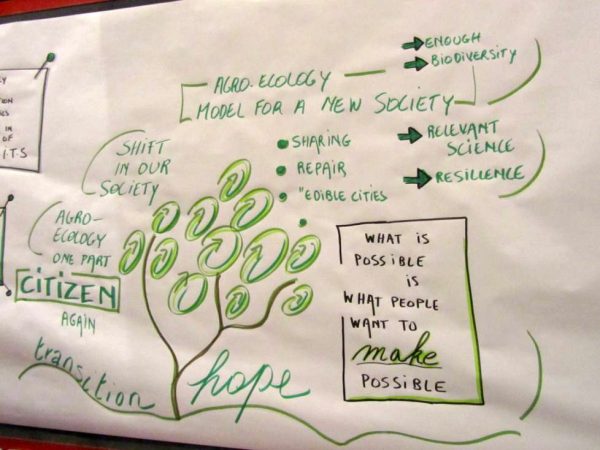 IN
OF
ITS
AGRO-ECOLOGY
MODEL FOR A NEW SOCIETY
ENOUGH
BIODIVERSITY
RELEVANT
SCIENCE
RESILLENCE
• SHARING
• REPAIR
• "EDIBLE CITIES
•
SHIFT
IN OUR
SOCIETY
AGRO-
ECOLOGY
ONE PART
CITIZEN
AGAIN
transition
hope
WHAT IS
POSSIBLE
IS
WHAT PEOPLE
WANT TO
make
POSSIBLE